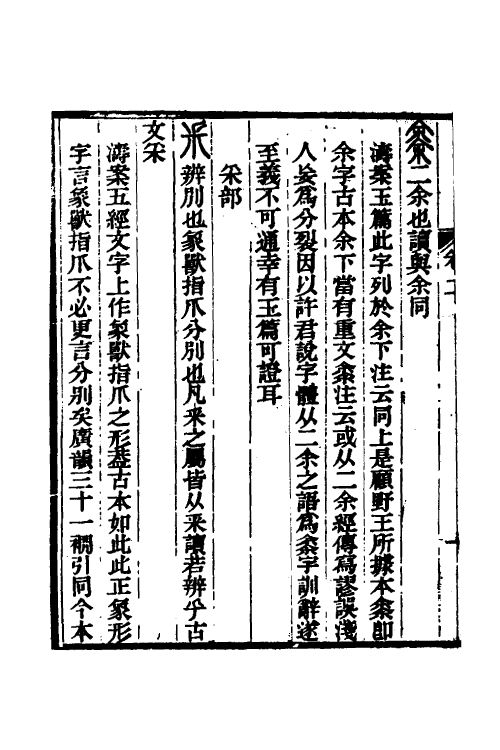 𠎳二余也讀與余同
濤案玉篇此字列於余下注云同上是顧野王所據本𠎳卽
余字古本余下當有重文𠎳注云或从二余經傳寫謬誤淺
人妄爲分裂因以許君說字體从二余之語爲𠎳字訓辭遂
至義不可通幸有玉篇可證耳
釆部
釆辨別也象獸指爪分別也凡釆之屬皆从釆讀若辨乎古
文釆
濤案五經文字上作象獸指爪之形葢古本如此此正象形
字言象獸指爪不必更言分別矣廣韻三十一襇引同今本
卷二
一